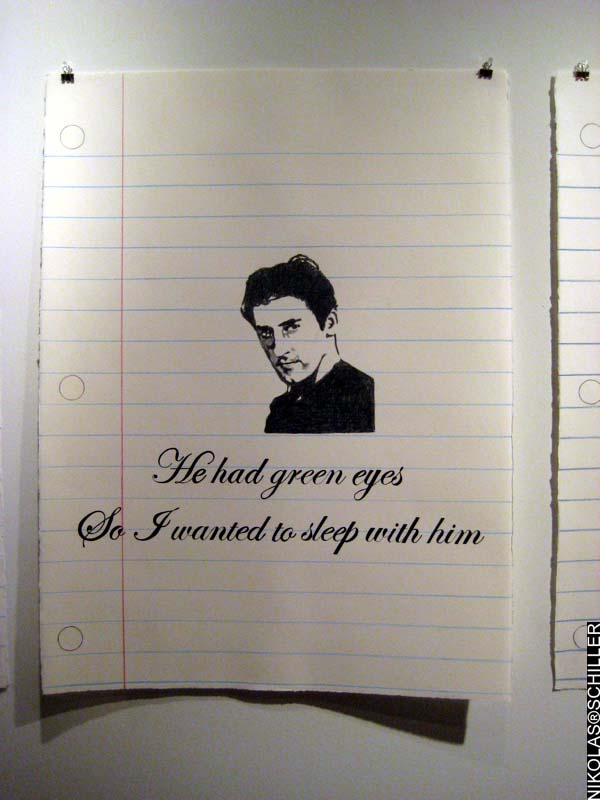 He had green eyes
So I wanted to sleep with him
NIKOLAS®SCHILLER